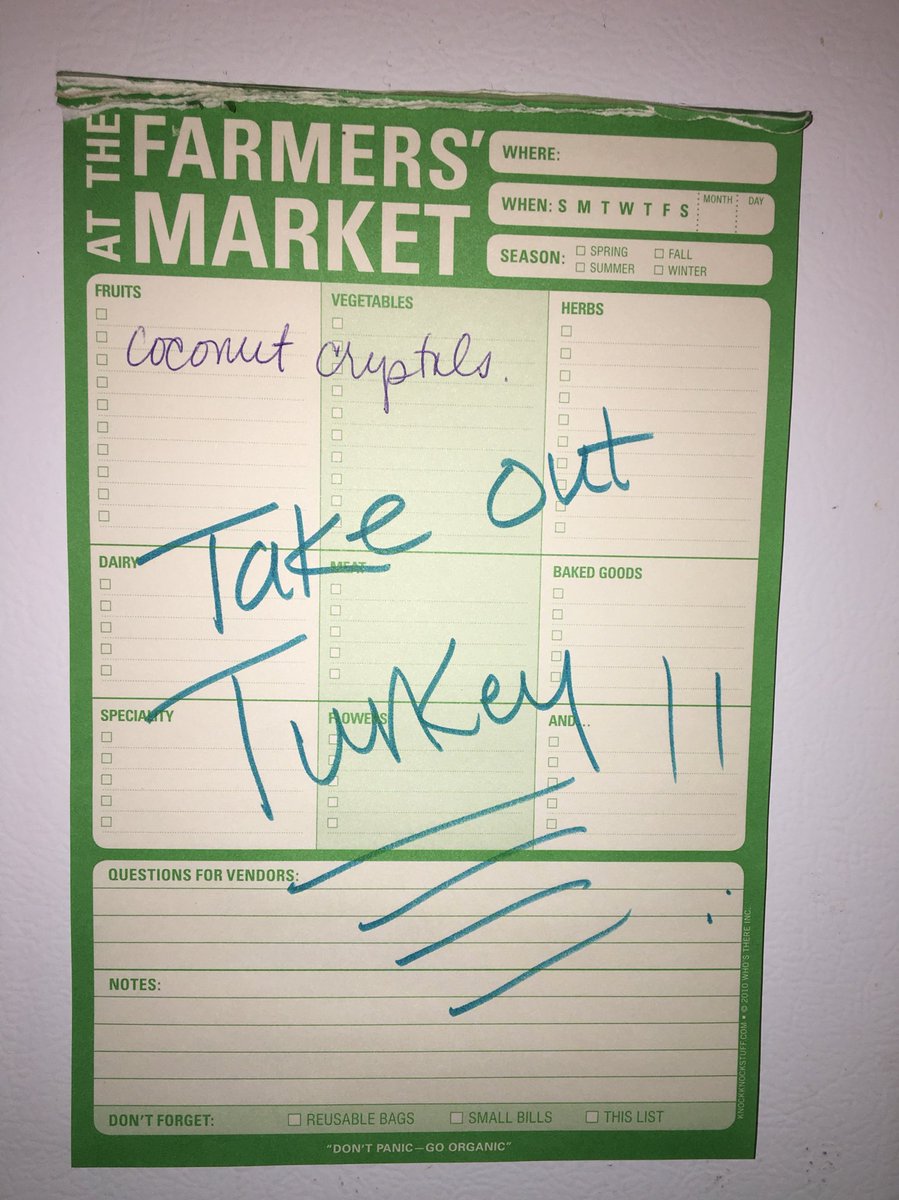 AT THE FARMERS' MARKET
WHERE:
WHEN: S M T W T F S MONTH DAY
SEASON: SPRING FALL
SUMMER WINTER
FRUITS
VEGETABLES
HERBS
coconut crystals.
Take out
DAIRY
MEAT
BAKED GOODS
Turkey !!
SPECIALITY
FLOWERS
AND...
QUESTIONS FOR VENDORS:
NOTES:
DON'T FORGET: REUSABLE BAGS SMALL BILLS THIS LIST
"DON'T PANIC—GO ORGANIC"
KNOCKKNOCKSTUFF.COM • © 2010 WHO'S THERE INC.